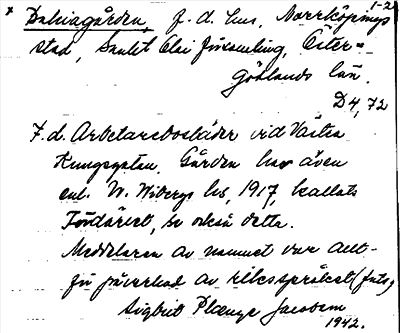 1-2
* Dalviagården, f. d. hus, Norrköpings
stad, Sankt Olai församling, Öster-
götlands län.
D4, 72
F. d. Arbetarebostäder vid Västra
Kungsgatan. Gården har även
enl. W. Wibergs hs, 1917, kallats
se också detta.
Meddelaren av namnet var
påverkad av riksspråket
Sigbrit Plænge Jacobson
1942.